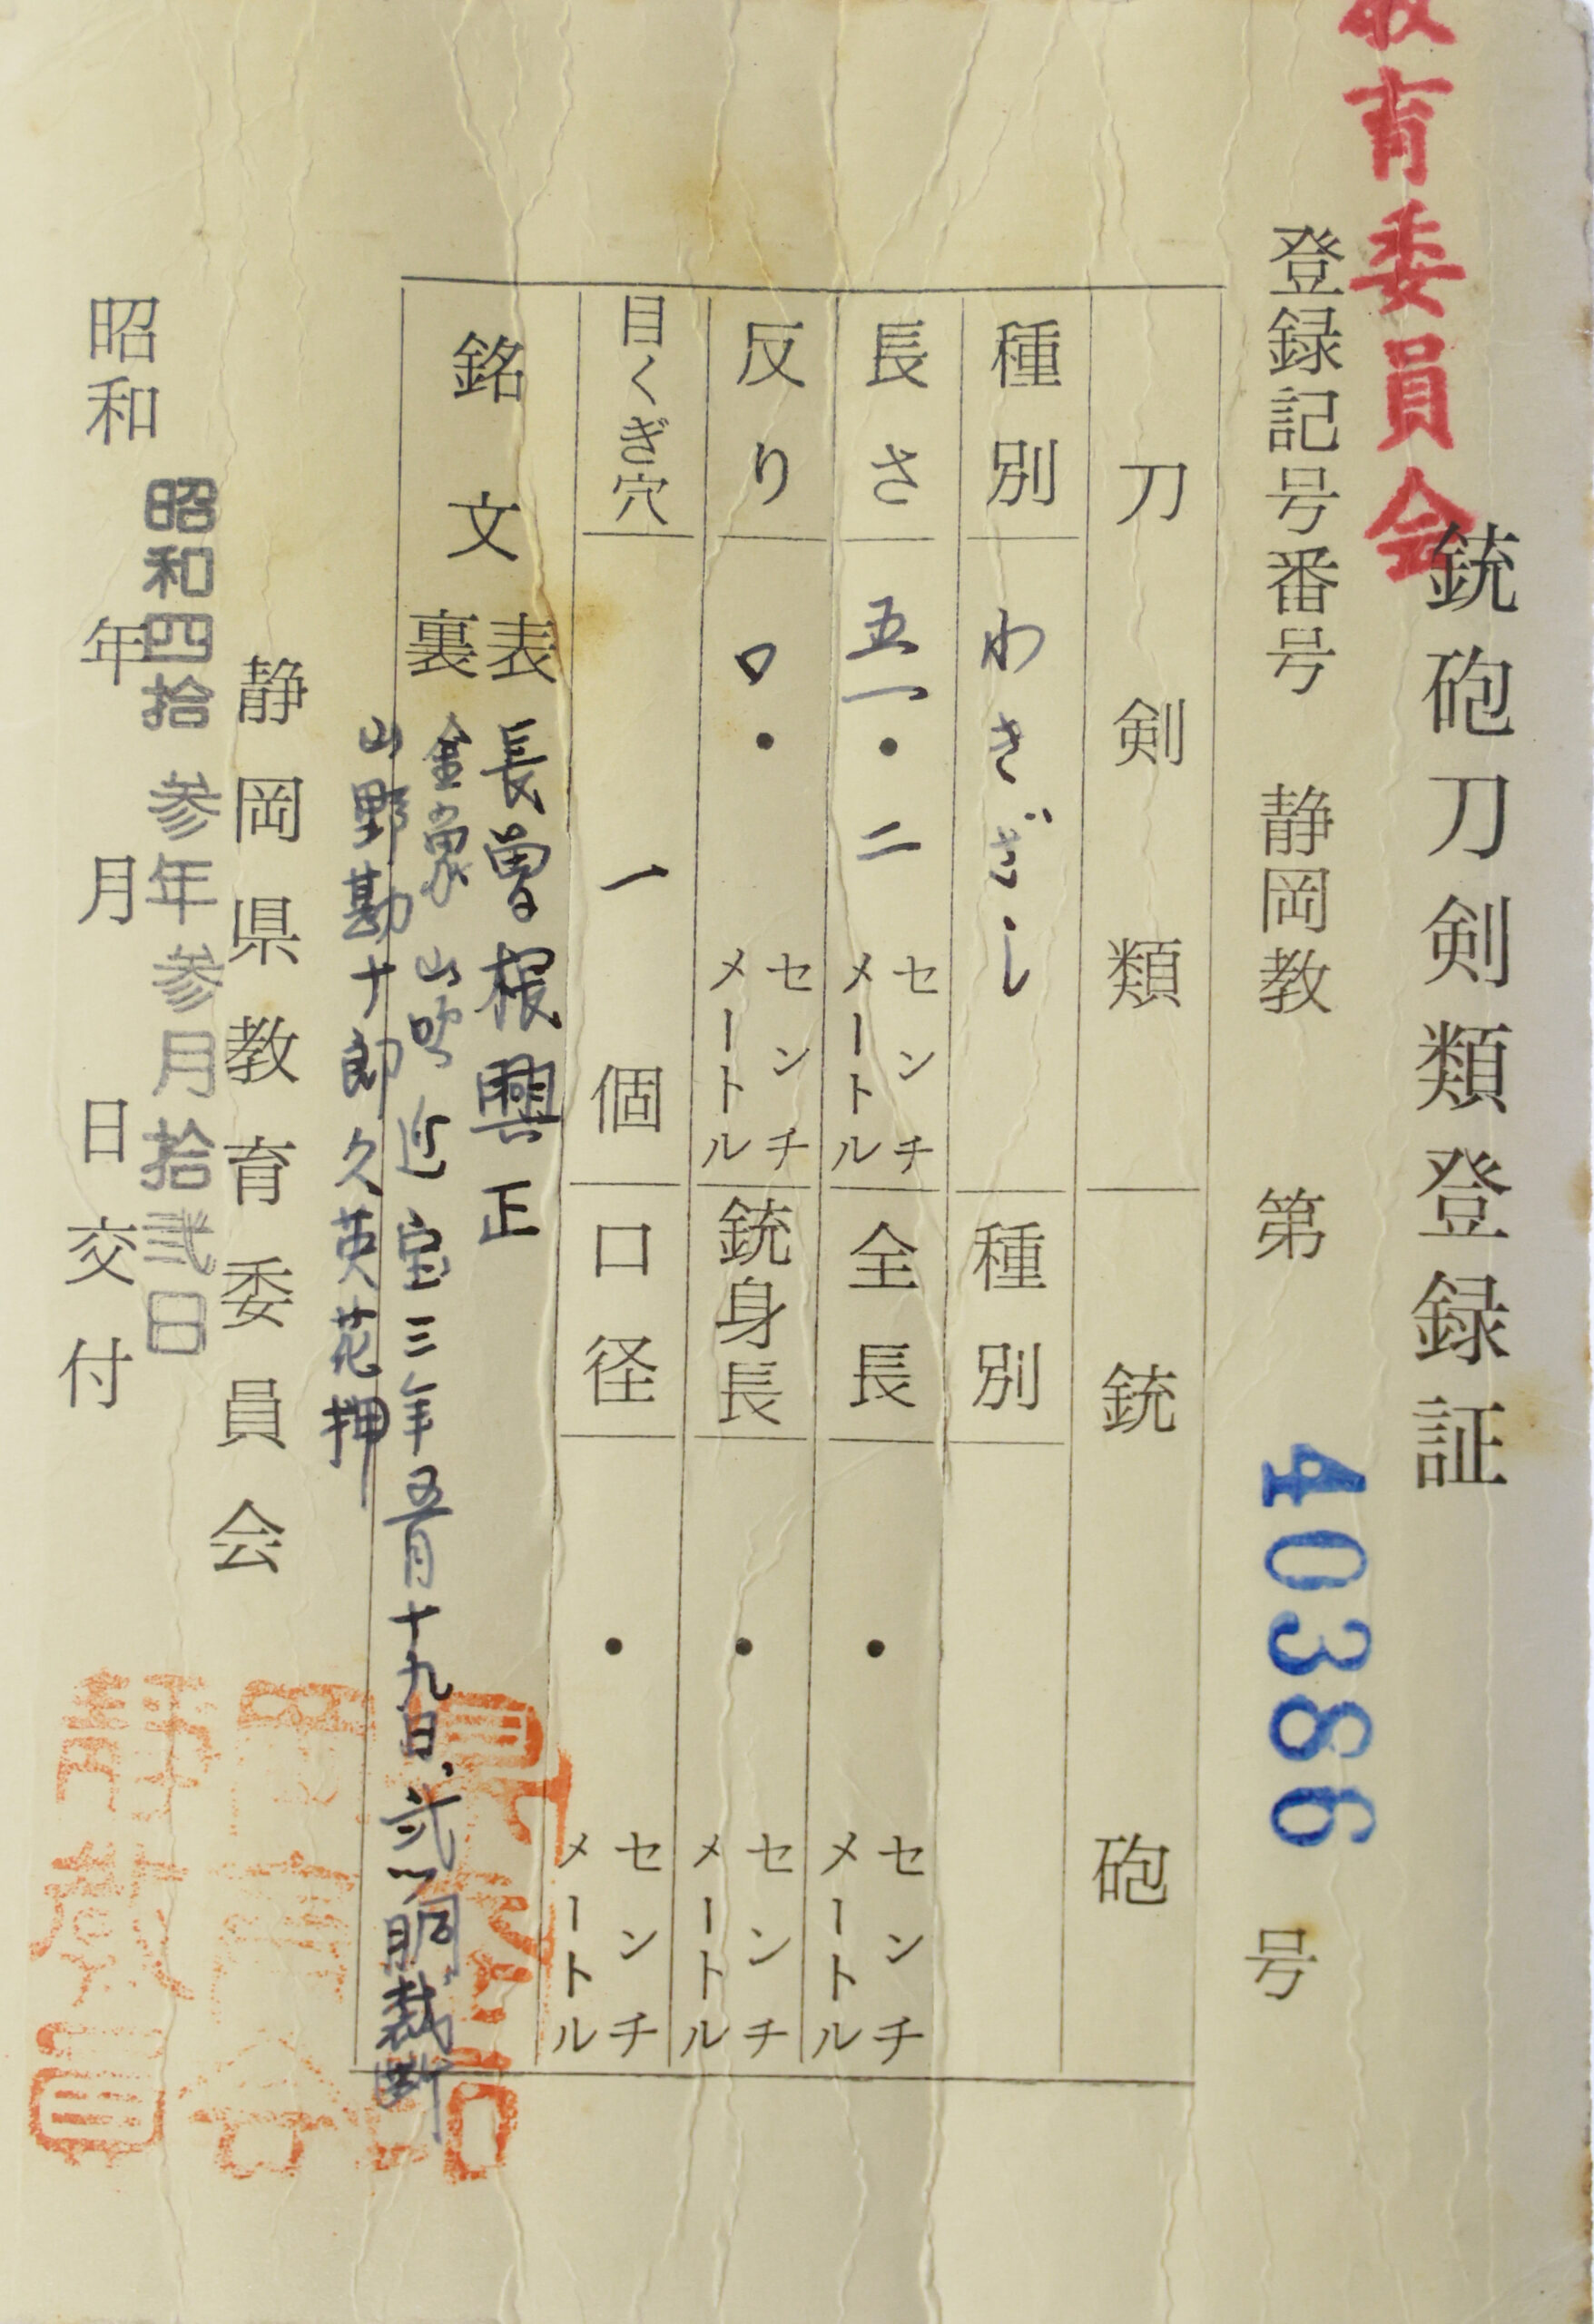 教育委員会
銃砲刀剣類登録証
登録記号番号 静岡教 第 40386 号
刀剣類 銃砲
種別 わきざし 種別
長さ 五一・二 センチメートル 全長 ・ センチメートル
反り 〇・ センチメートル 銃身長 ・ センチメートル
目くぎ穴 一 個 口径 ・ センチメートル
銘文
表 長曽根興正
裏 金象 山吹 延宝三年五月十九日、弐ツ胴裁断
山野勘十郎久英花押
静岡県教育委員会
昭和四拾参年参月拾弐日
昭和 年 月 日交付